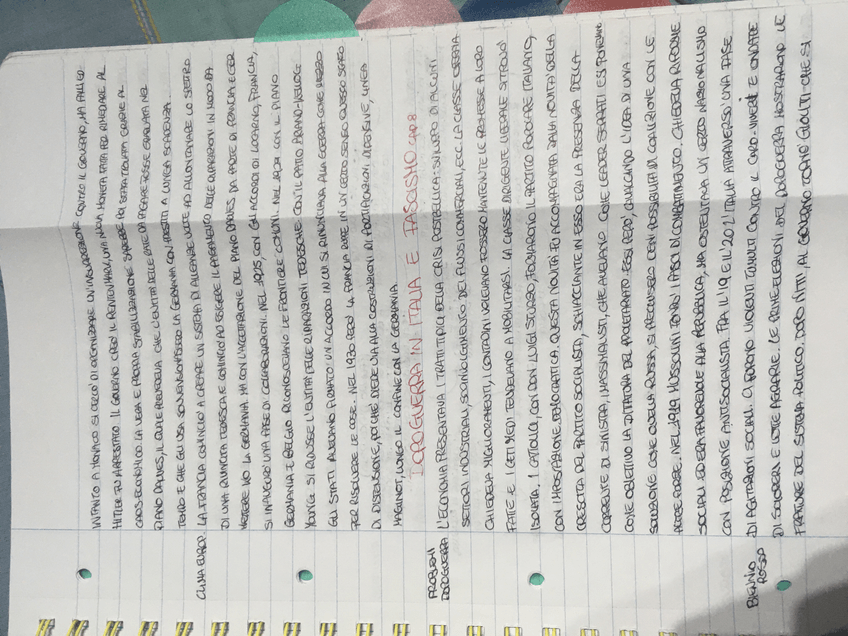 INTANTO A MONACO SI CERCÒ DI ORGANIZZARE UN'INSURREZIONE CONTRO IL GOVERNO, MA FALLÌ ED
HITLER FU ARRESTATO. IL GOVERNO CREÒ IL RENTENMARK, UNA NUOVA MONETA FATTA PER RIMEDIARE AL
CAOS ECONOMICO. LA VERA E PROPRIA STABILIZZAZIONE SAREBBE POI STATA TROVATA GRAZIE AL
PIANO DAWES, IL QUALE PREVEDEVA CHE L'ENTITÀ DELLE RATE DA PAGARE FOSSE GRADUATA NEL
TEMPO E CHE GLI USA SOVVENZIONASSERO LA GERMANIA CON PRESTITI A LUNGA SCADENZA.
CLIMA EUROP. LA FRANCIA COMINCIÒ A CREARE UN SISTEMA DI ALLEANZE VOLTE AD ALLONTANARE LO SPETTRO
DI UNA RIVINCITA TEDESCA E COMINCIÒ AD ESIGERE IL PAGAMENTO DELLE RIPARAZIONI IN MODO DA
METTERE KO LA GERMANIA. MA CON L'ACCETTAZIONE DEL PIANO DAWES DA PARTE DI FRANCIA E GER
SI INAUGURÒ UNA FASE DI COLLABORAZIONI. NEL 1925, CON GLI ACCORDI DI LOCARNO, FRANCIA,
GERMANIA E BELGIO RICONOSCEVANO LE FRONTIERE COMUNI. NEL 1929 CON IL PIANO
YOUNG SI RIDUSSE L'ENTITÀ DELLE RIPARAZIONI TEDESCHE. CON IL PATTO BRIAND-KELLOG
GLI STATI AVEVANO FIRMATO UN ACCORDO IN CUI SI RINUNCIAVA ALLA GUERRA COME MEZZO
PER RISOLVERE LE COSE. NEL 1930 PERÒ LA FRANCIA RUPPE IN UN CERTO SENSO QUESTO STATO
DI DISTENSIONE, POICHÉ DIEDE VIA ALLA COSTRUZIONE DI FORTIFICAZIONI DIFENSIVE, LINEA
MAGINOT, LUNGO IL CONFINE CON LA GERMANIA.
DOPOGUERRA IN ITALIA E FASCISMO CAP 8
PROBLEMI DOPOGUERRA L'ECONOMIA PRESENTAVA I TRATTI TIPICI DELLA CRISI POSTBELLICA: SVILUPPO DI ALCUNI
SETTORI INDUSTRIALI, SCONVOLGIMENTO DEI FLUSSI COMMERCIALI, ETC. LA CLASSE OPERAIA
CHIEDEVA MIGLIORAMENTI, I CONTADINI VOLEVANO FOSSERO MANTENUTE LE PROMESSE A LORO
FATTE E I CETI MEDI TENDEVANO A MOBILITARSI. LA CLASSE DIRIGENTE LIBERALE SI TROVÒ
ISOLATA. I CATTOLICI, CON DON LUIGI STURZO, FORMARONO IL PARTITO POPOLARE ITALIANO,
CON IMPOSTAZIONE DEMOCRATICA. QUESTA NOVITÀ FU ACCOMPAGNATA DALLA NOVITÀ DELLA
CRESCITA DEL PARTITO SOCIALISTA, SCHIACCIANTE IN ESSO ERA LA PRESENZA DELLA
CORRENTE DI SINISTRA, I MASSIMALISTI, CHE AVEVANO COME LEADER SERRATI E SI PONEVANO
COME OBIETTIVO LA DITTATURA DEL PROLETARIATO. ESSI PERÒ, COVANDO L'IDEA DI UNA
SOLUZIONE COME QUELLA RUSSA, SI PRECLUSERO OGNI POSSIBILITÀ DI COALIZIONE CON LE
ALTRE FORZE. NEL 1919 MUSSOLINI FONDÒ I FASCI DI COMBATTIMENTO. CHIEDEVA RIFORME
SOCIALI ED ERA FAVOREVOLE ALLA REPUBBLICA, MA OSTENTAVA UN CERTO NAZIONALISMO
CON POSIZIONE ANTISOCIALISTA. FRA IL '19 E IL '20 L'ITALIA ATTRAVERSÒ UNA FASE
BIENNIO ROSSO DI AGITAZIONI SOCIALI. CI FURONO VIOLENTI TUMULTI CONTRO IL CARO-VIVERI E ONDATE
DI SCIOPERI E LOTTE AGRARIE. LE PRIME ELEZIONI DEL DOPOGUERRA MOSTRARONO LE
FRATTURE DEL SISTEMA POLITICO. DOPO NITTI, AL GOVERNO TORNÒ GIOLITTI CHE SI